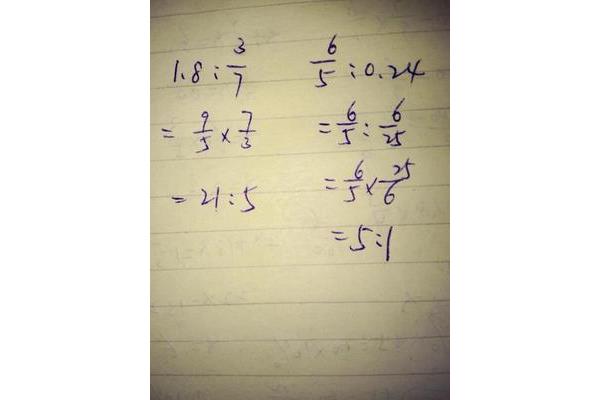 1.8 : 3/7
= 9/5 × 7/3
= 21 : 5
6/5 : 0.24
= 6/5 : 6/25
= 6/5 × 25/6
= 5 : 1